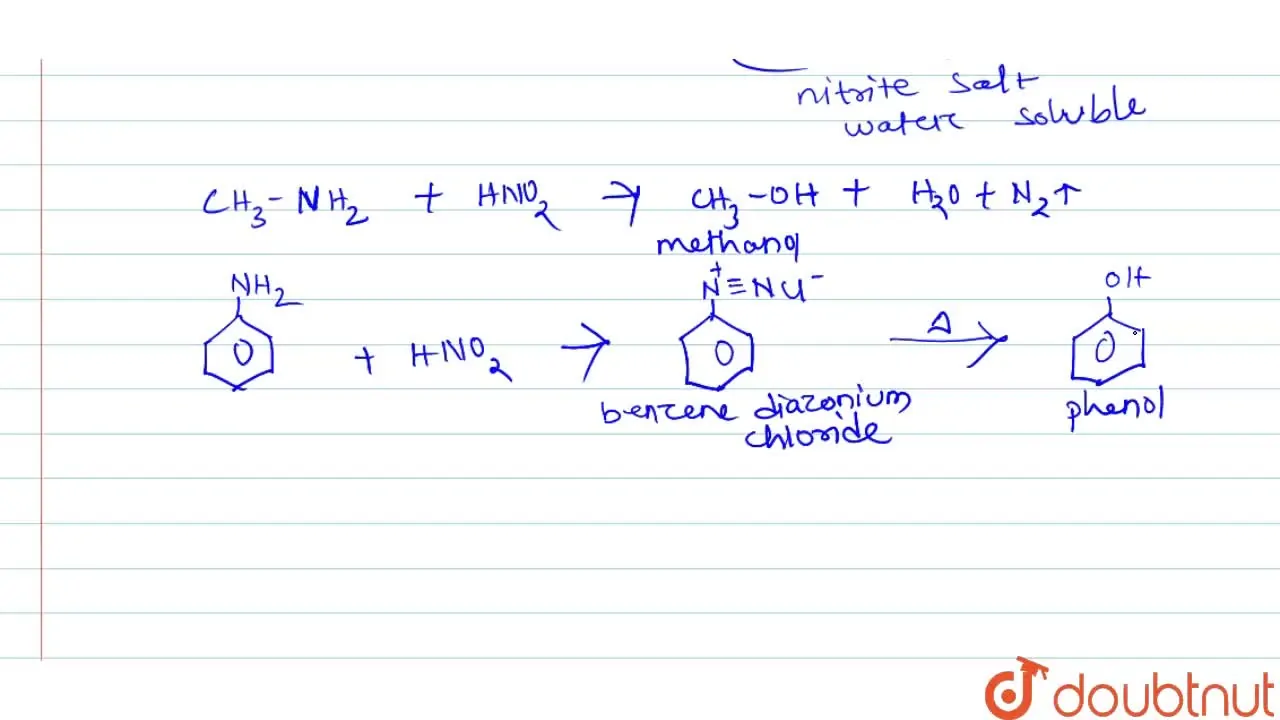 nitrite salt
watere soluble
CH3-NH2 + HNO2 → CH3-OH + H2O + N2↑
methanol
NH2
N+≡NCl-
OH
+ HNO2 → Δ→
benzene diazonium
chloride
phenol
doubtnut